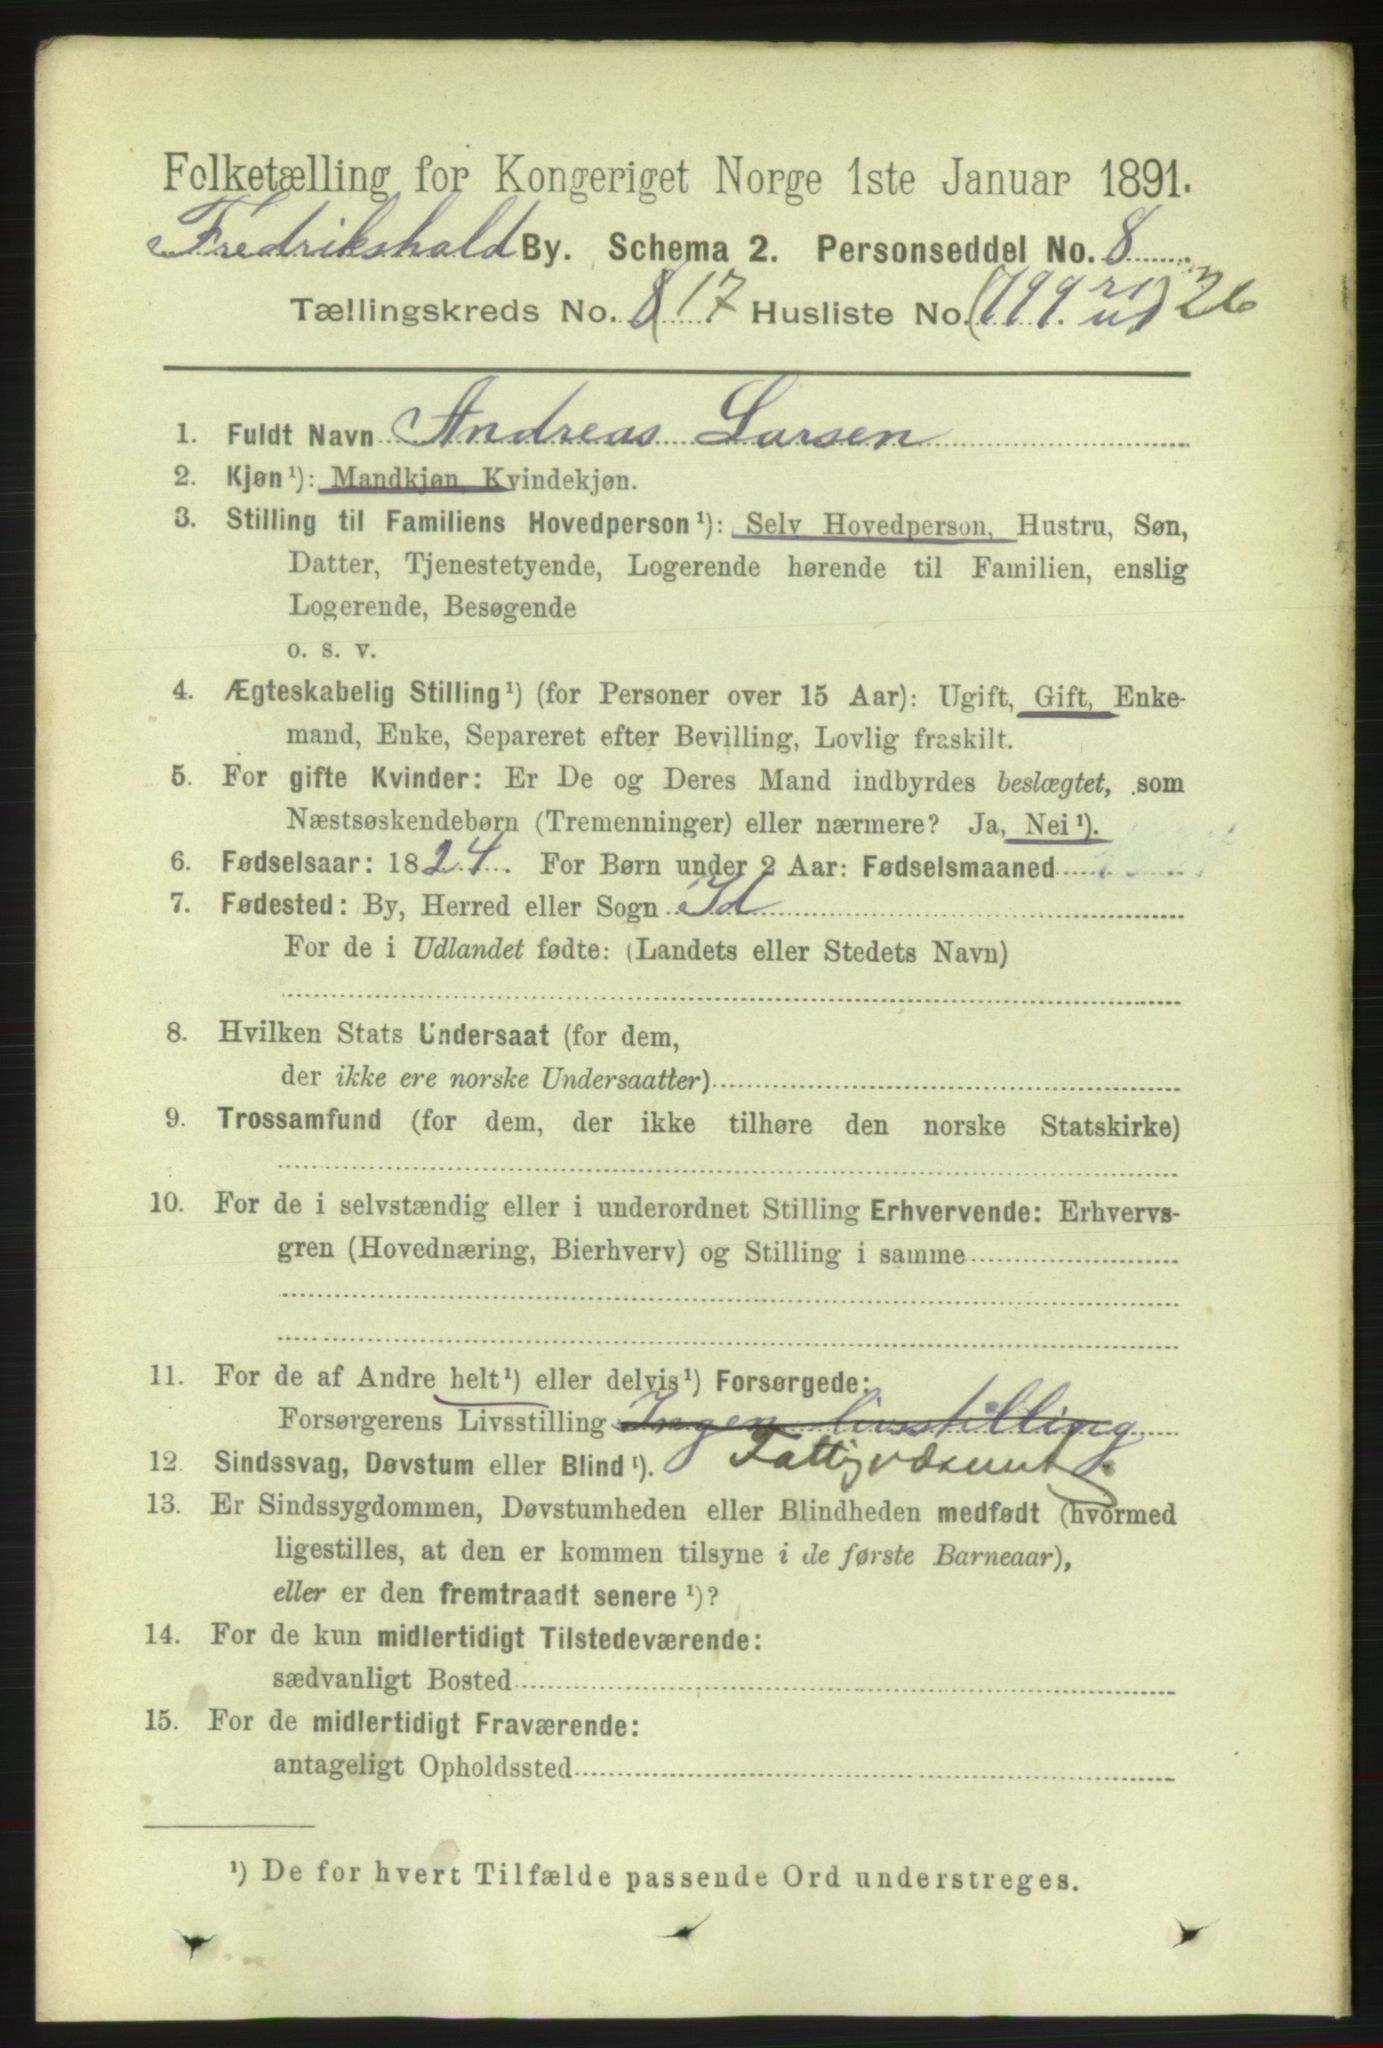 Folketælling for Kongeriget Norge 1ste Januar 1891.
Fredrikshald By. Schema 2. Personseddel No. 8
Tællingskreds No. 8 17 Husliste No. (199. 26
1. Fuldt Navn Andreas Larsen
2. Kjøn¹): Mandkjøn Kvindekjøn.
3. Stilling til Familiens Hovedperson¹): Selv Hovedperson, Hustru, Søn,
Datter, Tjenestetyende, Logerende hørende til Familien, enslig
Logerende, Besøgende
o. s. v.
4. Ægteskabelig Stilling¹) (for Personer over 15 Aar): Ugift, Gift, Enke-
mand, Enke, Separeret efter Bevilling, Lovlig fraskilt.
5. For gifte Kvinder: Er De og Deres Mand indbyrdes beslægtet, som
Næstsøskendebørn (Tremenninger) eller nærmere? Ja, Nei¹).
6. Fødselsaar: 1824. For Børn under 2 Aar: Fødselsmaaned
7. Fødested: By, Herred eller Sogn Id
For de i Udlandet fødte: (Landets eller Stedets Navn)
8. Hvilken Stats Undersaat (for dem,
der ikke ere norske Undersaatter)
9. Trossamfund (for dem, der ikke tilhøre den norske Statskirke)
10. For de i selvstændig eller i underordnet Stilling Erhvervende: Erhvervs-
gren (Hovednæring, Bierhverv) og Stilling i samme
11. For de af Andre helt¹) eller delvis¹) Forsørgede:
Forsørgerens Livsstilling Ingen livsstilling
12. Sindssvag, Døvstum eller Blind¹). Fattigvæsenet
13. Er Sindssygdommen, Døvstumheden eller Blindheden medfødt (hvormed
ligestilles, at den er kommen tilsyne i de første Barneaar),
eller er den fremtraadt senere¹)?
14. For de kun midlertidigt Tilstedeværende:
sædvanligt Bosted
15. For de midlertidigt Fraværende:
antageligt Opholdssted
¹) De for hvert Tilfælde passende Ord understreges.